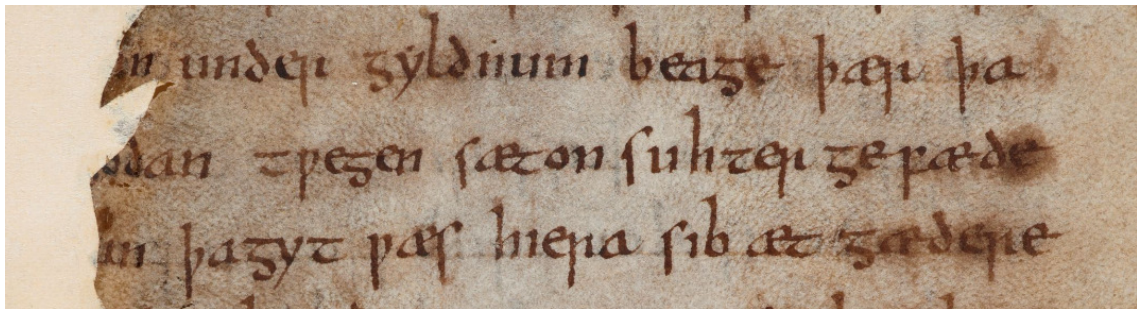 an under gyldnum beage þær þa
odan tƿegen sæton suhter gefæde
an þagyt ƿæs hiera sib æt gædere